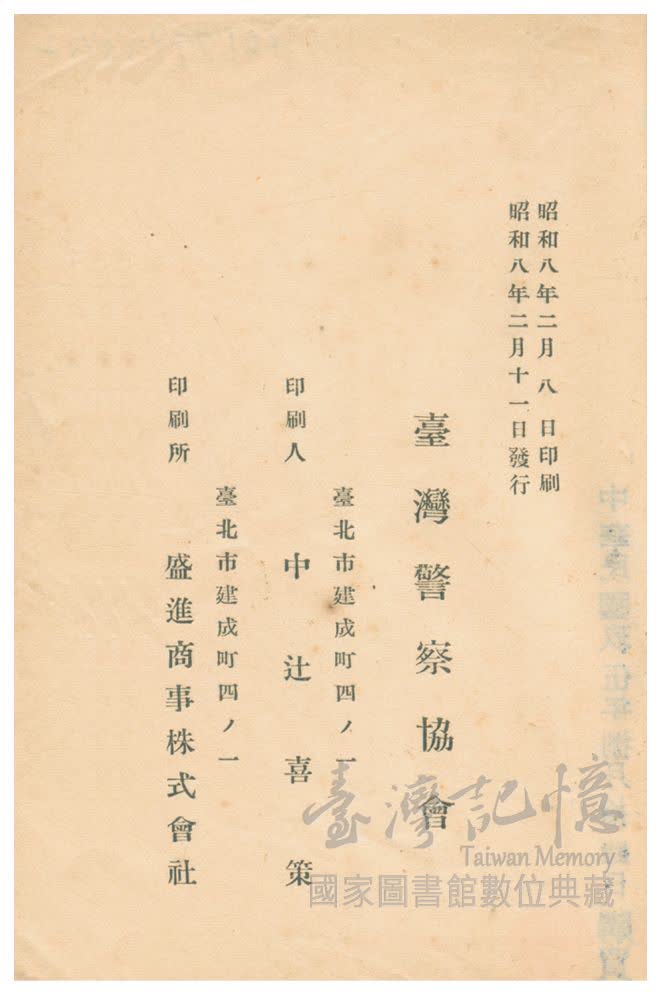 昭和八年二月八日印刷
昭和八年二月十一日發行
臺灣警察協會
臺北市建成町四ノ一
印刷人 中辻喜策
臺北市建成町四ノ一
印刷所 盛進商事株式會社
臺灣記憶
Taiwan Memory
國家圖書館數位典藏